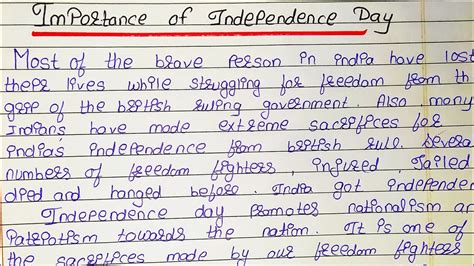 Importance of Independence Day
Most of the brave person in india have lost
their lives while struggling for freedom from th
grip of the british ruling government. Also many
Indians have made extreme sacrifices for
india's independence from british rule. Severa
numbers of freedom fighters, injured, Jailed
died and hanged before. India got independe
Independence day promotes nationalism an
patriotism towards the nation. It is one of
the sacrifices made by our freedom fighters